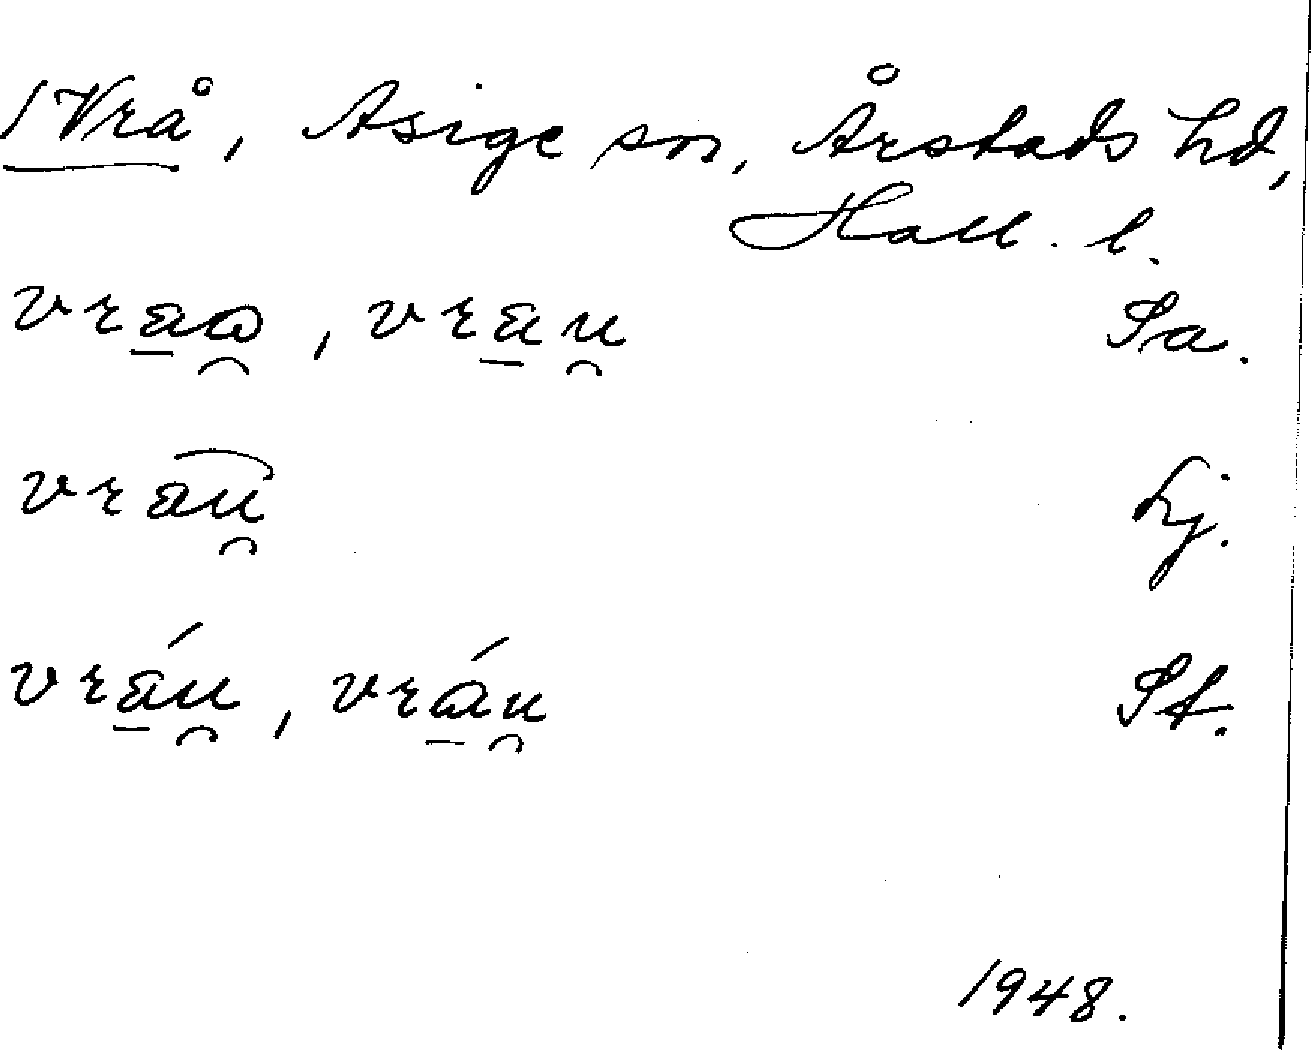 /Vrå, Asige sn, Årstads hd,
Hall. l.
vra̱ω̯, vra̱u̯ Sa.
vrau̯ Lj.
vrá̱u̯, vrá̱u̯ St.
1948.